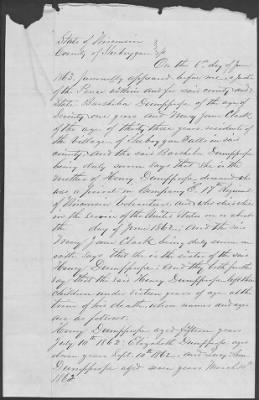 State of Wisconsin
County of Sheboygan
On the 1st day of June
1863, personally appeared before me a Justice
of the Peace within and for said county and
State Barsheba Dumpprope of the age of
Seventy one years and Mary Jane Clark
of the age of thirty three years residents of
the village of Sheboygan Falls in said
county. And the said Barsheba Dumpprope
being duly sworn says that she is the
mother of Henry Dumpprope deceased who
was a private in Company 17th Regiment
of Wisconsin Volunteers and who died
in the service of the United States on or about
the day of June 1862. And the said
Mary Jane Clark being duly sworn on
oath says that she is the sister of the said
Henry Dumpprope. And they both further
say that the said Henry Dumpprope left three
children under sixteen years of age at the
time of his death whose names and ages
are as follows:
Henry Dumpprope aged fifteen years
July 10th 1862: Elizabeth Dumpprope aged
eleven years Sept. 10th 1862. and
Dumpprope aged seven years March
1862